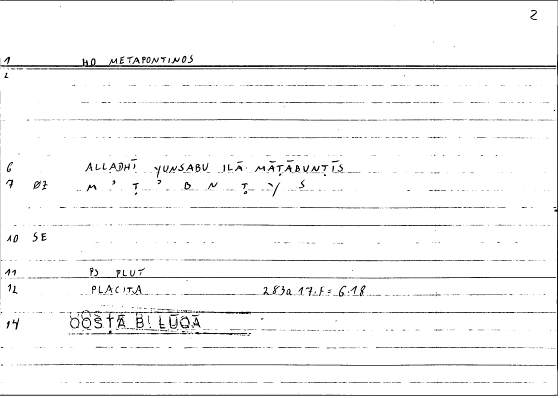 2
1 HO METAPONTINOS
2
6 ALLADHĪ YUNSABU ILĀ MĀṬĀBUNṬĪS
7 ØZ M ' Ṭ ' B N Ṭ Y S
10 SE
11 PS PLUT
12 PLACITA 283a 17.F = 6.18
14 QOSṬĀ B! LŪQĀ